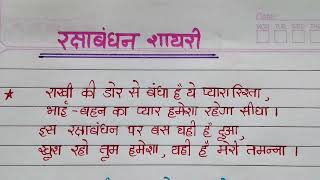 Date:
MON TUE WED THU
रक्षाबंधन शायरी
★ राखी की डोर से बंधा है ये प्यारा रिश्ता,
भाई-बहन का प्यार हमेशा रहेगा सीधा।
इस रक्षाबंधन पर बस यही है दुआ,
खुश रहो तुम हमेशा, यही है मेरी तमन्ना।